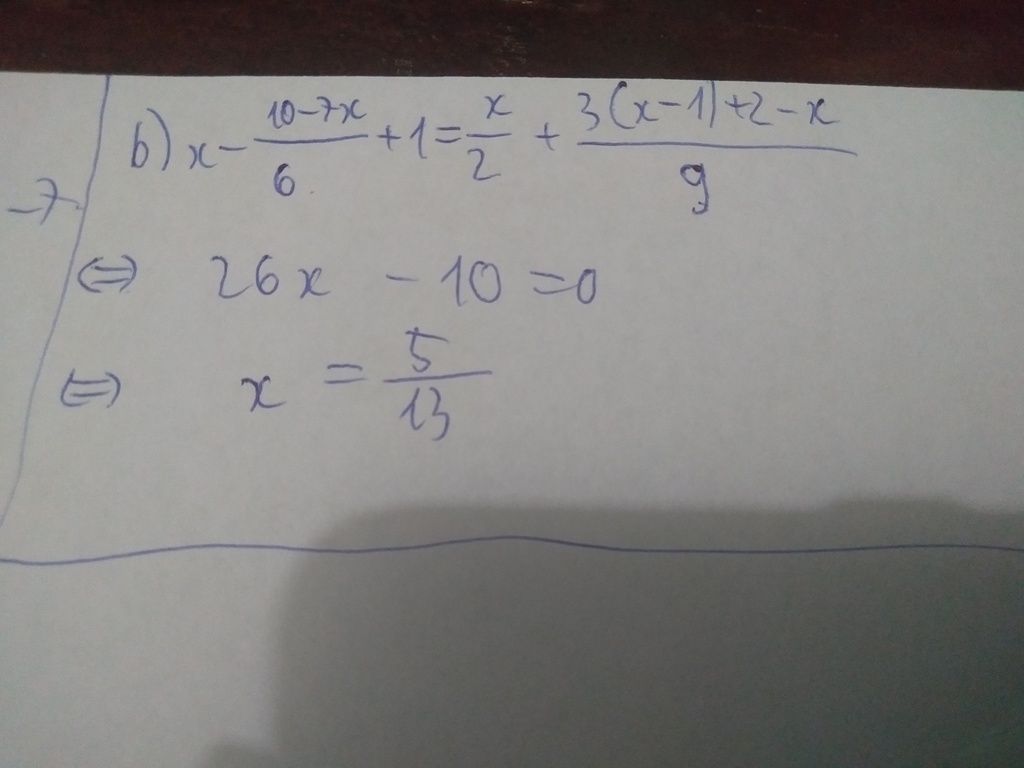 b) x - (10-7x)/6 + 1 = x/2 + (3(x-1)+2-x)/9
-7
⇔ 26x - 10 = 0
⇔ x = 5/13